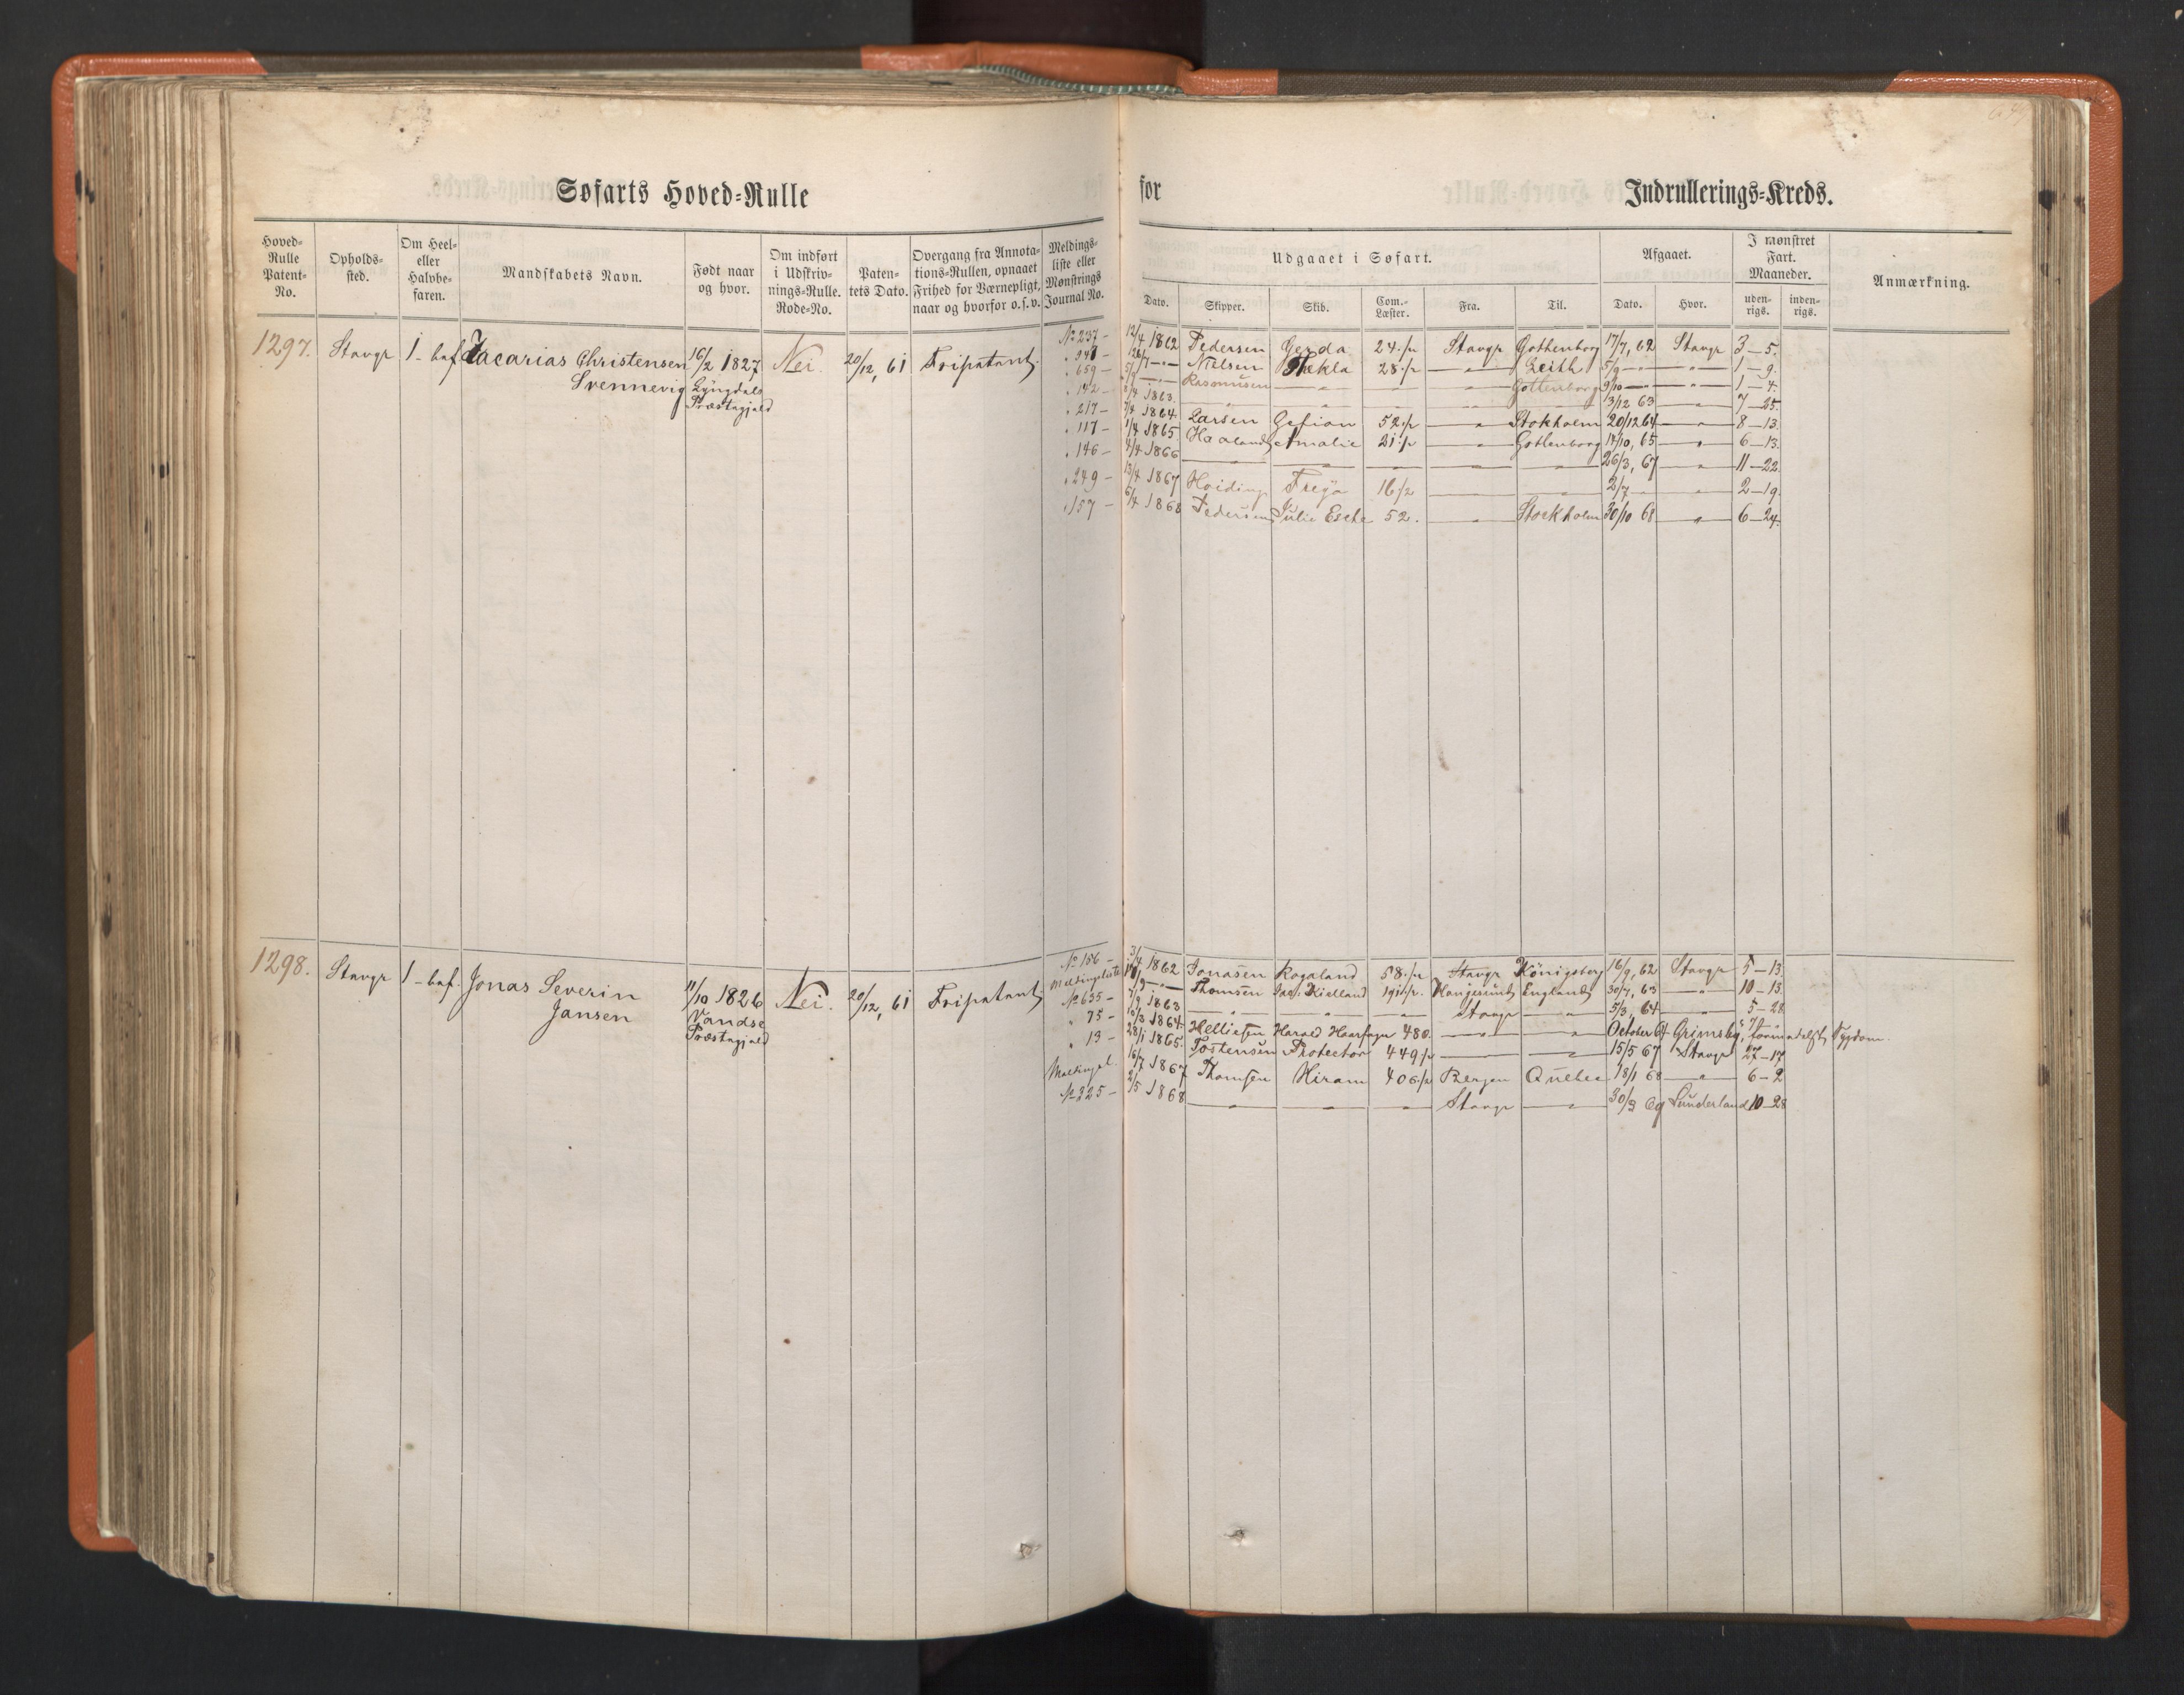 Søfarts Hoved-Rulle
for Indrullerings-Kreds.
Hoved-Rulle Patent-No.
Opholds-sted.
Om Heel- eller Halvbe-faren.
Mandskabets Navn.
Født naar og hvor.
Om indført i Udskriv-nings-Rulle. Rode-No.
Paten-tets Dato.
Overgang fra Annota-tions-Rullen, opnaaet Frihed for Værnepligt, naar og hvorfor o.s.v.
Meldings-liste eller Mønstrings Journal No.
Udgaaet i Søfart.
Dato. Skipper. Skib. Com.-Læster. Fra. Til.
Afgaaet.
Dato. Hvor.
I mønstret Fart. Maaneder.
uden-rigs. inden-rigs.
Anmærkning.
1297. Stavgr 1-bef. Zacarias Christensen 16/2 1827 Nei. 20/12, 61 Fripatent.
Svennevig Lyngdals
Præstegjeld
No 237 - 12/4 1862 Pedersen Gerda 24./2 Stavgr Gothenborg 17/7, 62 Stavgr 3-5.
Nielsen Thekla 28./2 — " — Leith 5/9 — " — " — 1-9.
" 659 - Rasmusen — " — Gottenborg 9/10 — " — " — 1-4.
" 142 - 1863. — " — 13/12 63 — " — 7-25.
" 217 - 7/4 1864. Larsen Gefion 52./2 — " — Stokholm 20/12 64 — " — 8-13.
" 117 - 1/4 1865 Haaland Amalie 21./2 — " — Gothenborg 14/10, 65 — " — 6-13.
" 146 - 4/4 1866 — " — 26/3, 67 — " — 11-22.
" 249 - 13/4 1867 Hoiding Freÿa 16/2 — 2/7 — " — 2-19.
" 157 - 6/4 1868 Pedersen Julie Esche 52. — " — Stockholm 30/10 68 — " — 6-24.
1298. Stavgr 1-bef. Jonas Severin 11/10 1826 Nei. 20/12, 61 Fripatent.
Jansen Vandse
Præstegjeld
No 156 - 3/4 1862 Jonasen Rogaland 58./2 Stavgr Königsberg 16/9, 62 Stavgr 5-13.
Meldingsliste Thomsen Jac: Kielland 191./2. Haugesund England 30/7, 63 — " — 10-13.
No 635 - 7/9 1863 — " — Stavgr — " — 5/3, 64 — " — 5-28.
" 75 - 1864. Helliesen Harald Haarfager 480. — " — October 64 Grimsby, Sygdom.
" 13 - 28/1 1865. Tostensen Protector 449/2 — " — 15/5 67 Stavgr 27-17
Meldingsl. 16/7 1867 Thomsen Hiram 406/2 Bergen Quebec 18/1 68 — " — 6-2
No 325 - 2/5 1868 — " — Stavgr — " — 30/3 69 Sunderland 10-28